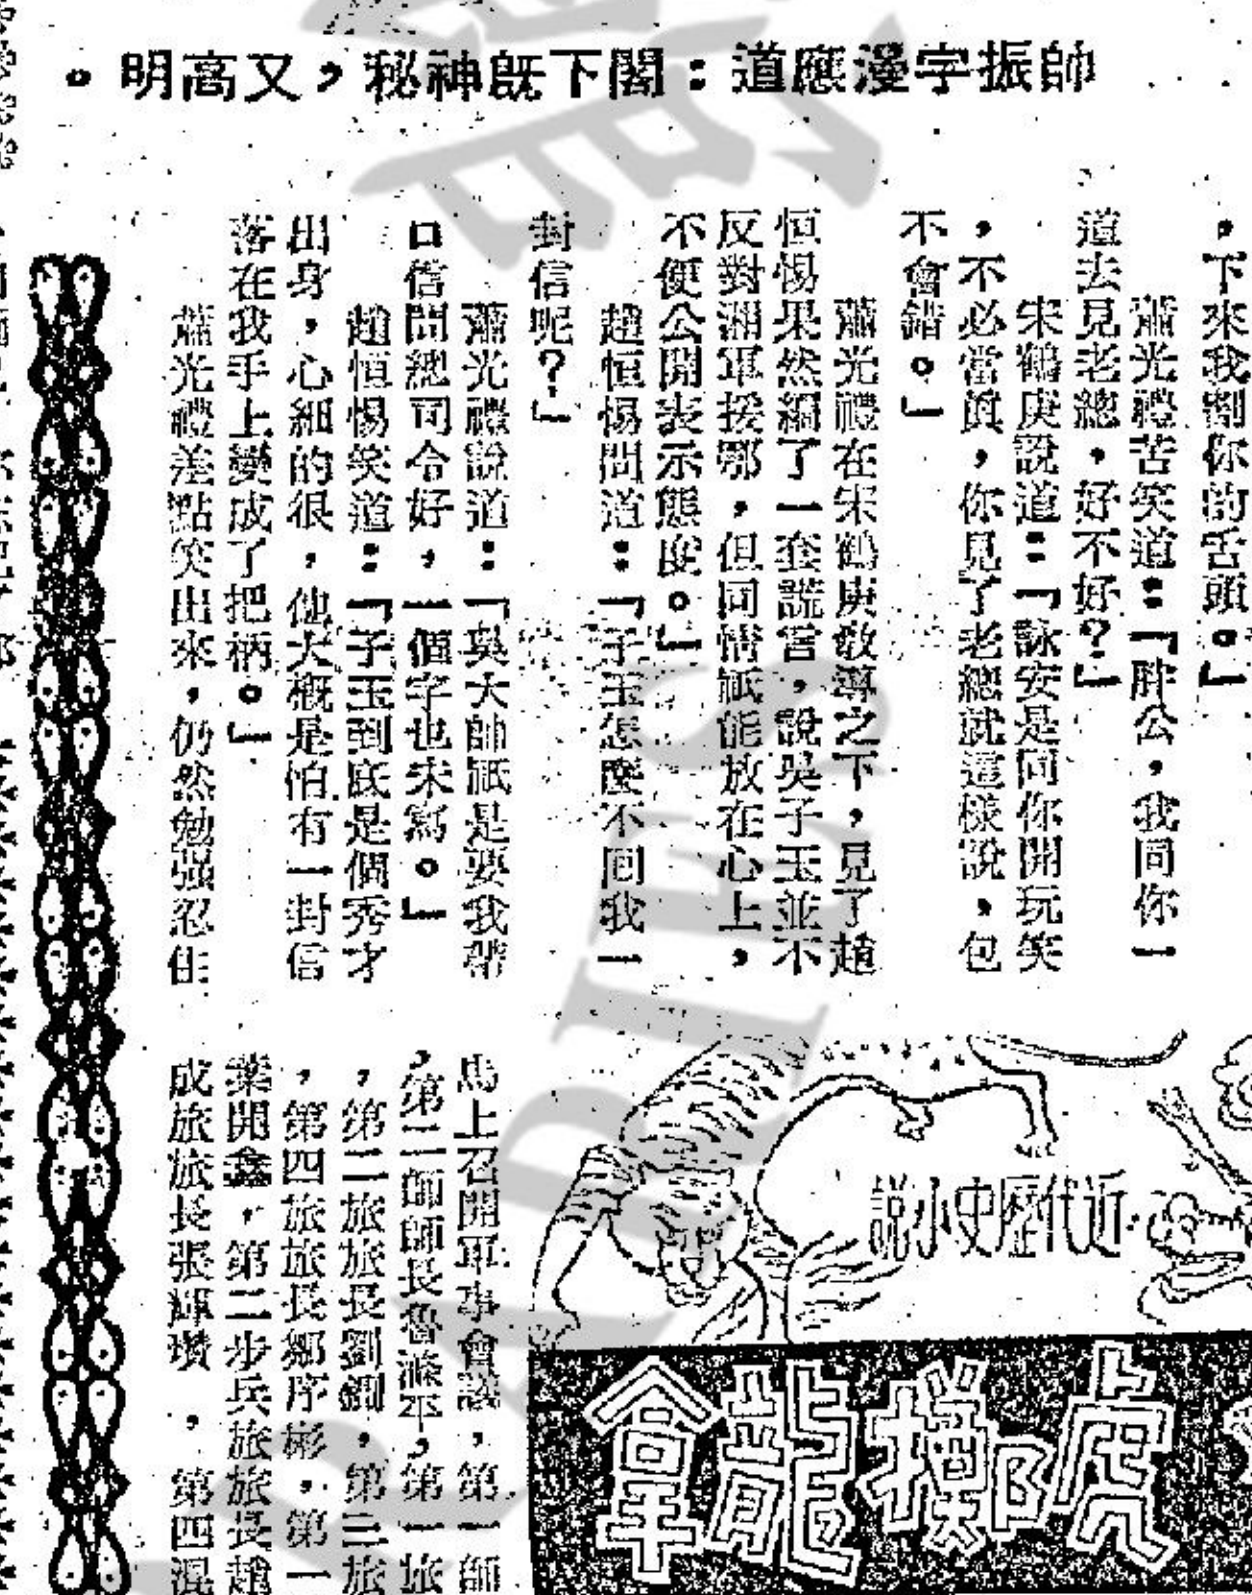 帥振字漫應道：閣下既神秘，又高明。
，下來我割你的舌頭。」
蕭光禮苦笑道：「胖公，我同你一
道去見老總，好不好？」
宋鶴庚說道：「詠安是同你開玩笑
，不必當眞，你見了老總就這樣說，包
不會錯。」
蕭光禮在宋鶴庚敎導之下，見了趙
恒惕果然編了一套謊言，說吳子玉並不
反對湘軍援鄂，但同情祇能放在心上，
不便公開表示態度。」
趙恒惕問道：「子玉怎麼不回我一
封信呢？」
蕭光禮說道：「吳大帥祇是要我帶
口信問總司令好，一個字也未寫。」
趙恒惕笑道：「子玉到底是個秀才
出身，心細的很，他大概是怕有一封信
落在我手上變成了把柄。」
蕭光禮差點笑出來，仍然勉强忍住
近代歷史小說
虎擲龍拿
馬上召開軍事會議，第一師
，第二師師長魯滌平，第一旅
，第二旅旅長劉鉶，第三旅
，第四旅旅長鄒序彬，第一
葉開鑫，第二步兵旅旅長趙
成旅旅長張輝瓚，第四混